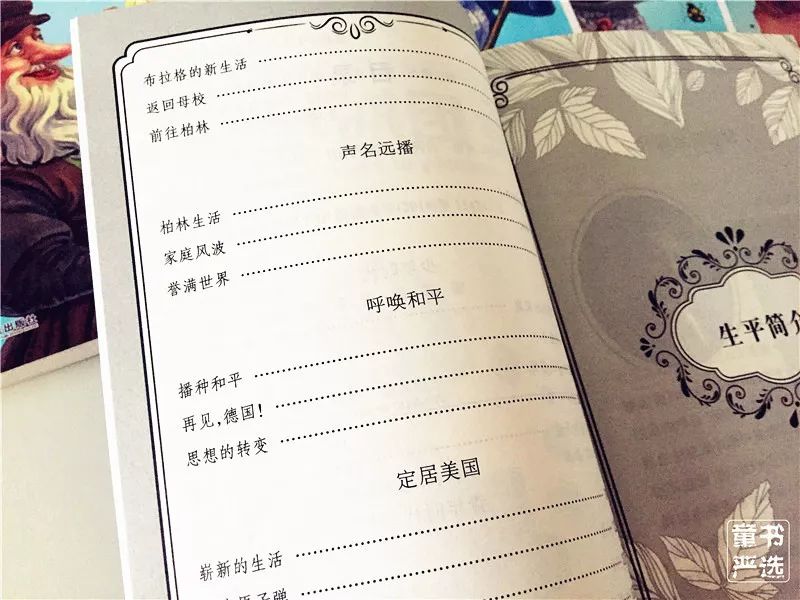 布拉格的新生活
返回母校
前往柏林
声名远播
柏林生活
家庭风波
誉满世界
呼唤和平
播种和平
再见,德国!
思想的转变
定居美国
崭新的生活
原子弹
生平简介
出版社
童书
严选